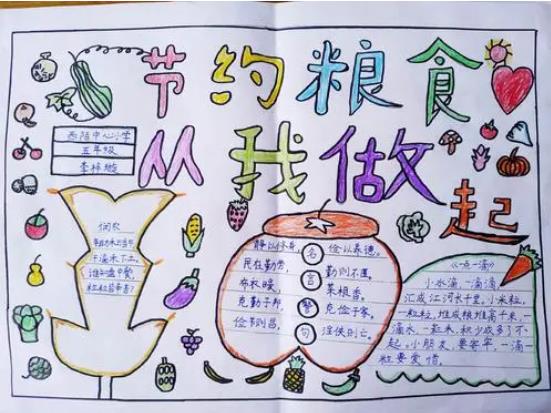 节约粮食
从我做起
西陌中心小学
五年级
李梓璇
悯农
锄禾日当午
汗滴禾下土。
谁知盘中餐
粒粒皆辛苦?
名言警句
静以修身, 俭以养德。
民在勤劳, 勤则不匮。
布衣暖, 菜根香。
克勤于邦, 克俭于家。
俭节则昌, 淫佚则亡。
《一点一滴》
小水滴,一滴滴,
汇成江河水千里。小米粒,
一粒粒,堆成粮堆高千米,一
滴水,一粒米,积少成多了不
起。小朋友,要牢牢,一滴
一粒要爱惜。